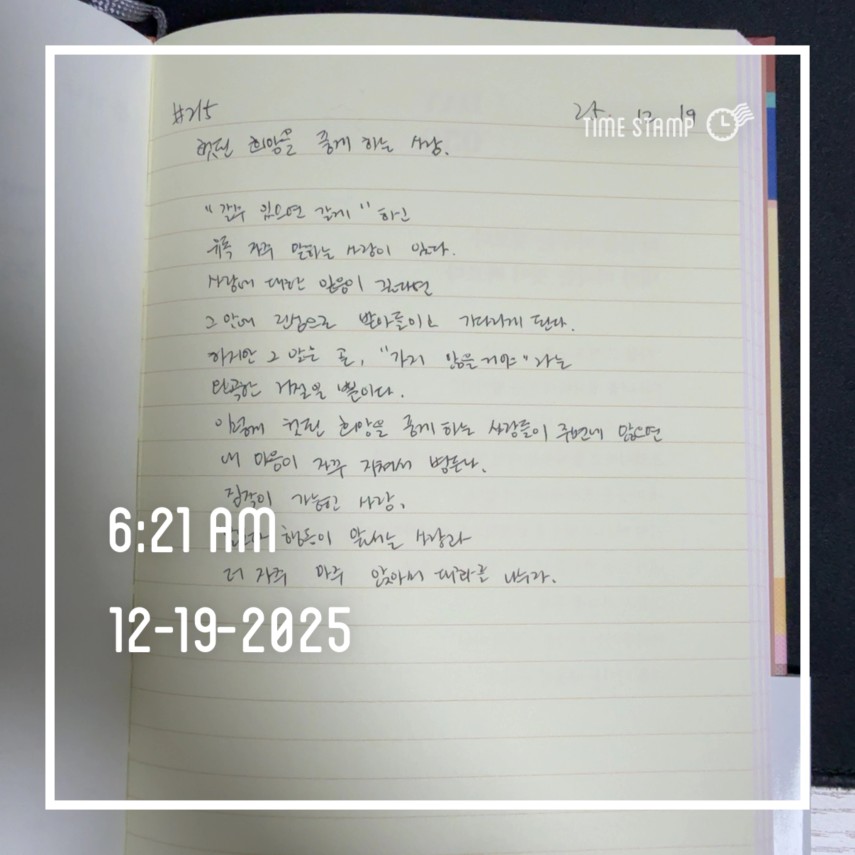 #215
25. 12. 19
TIME STAMP
헛된 희망을 품게 하는 사람.
"갈수 있으면 갈게" 하고
유독 자주 말하는 사람이 있다.
사람에 대한 믿음이 크다면
그 말에 진심으로 받아들이고 기다리게 된다.
하지만 그 말은 곧, "가지 않을거야" 라는
완곡한 거절일 뿐이다.
이렇게 헛된 희망을 품게 하는 사람들이 주변에 많으면
내 마음이 자꾸 지쳐서 병든다.
짐작이 가능한 사람,
6:21 AM
행동이 앞서는 사람과
더 자주 마주 앉아서 대화를 나누자.
12-19-2025